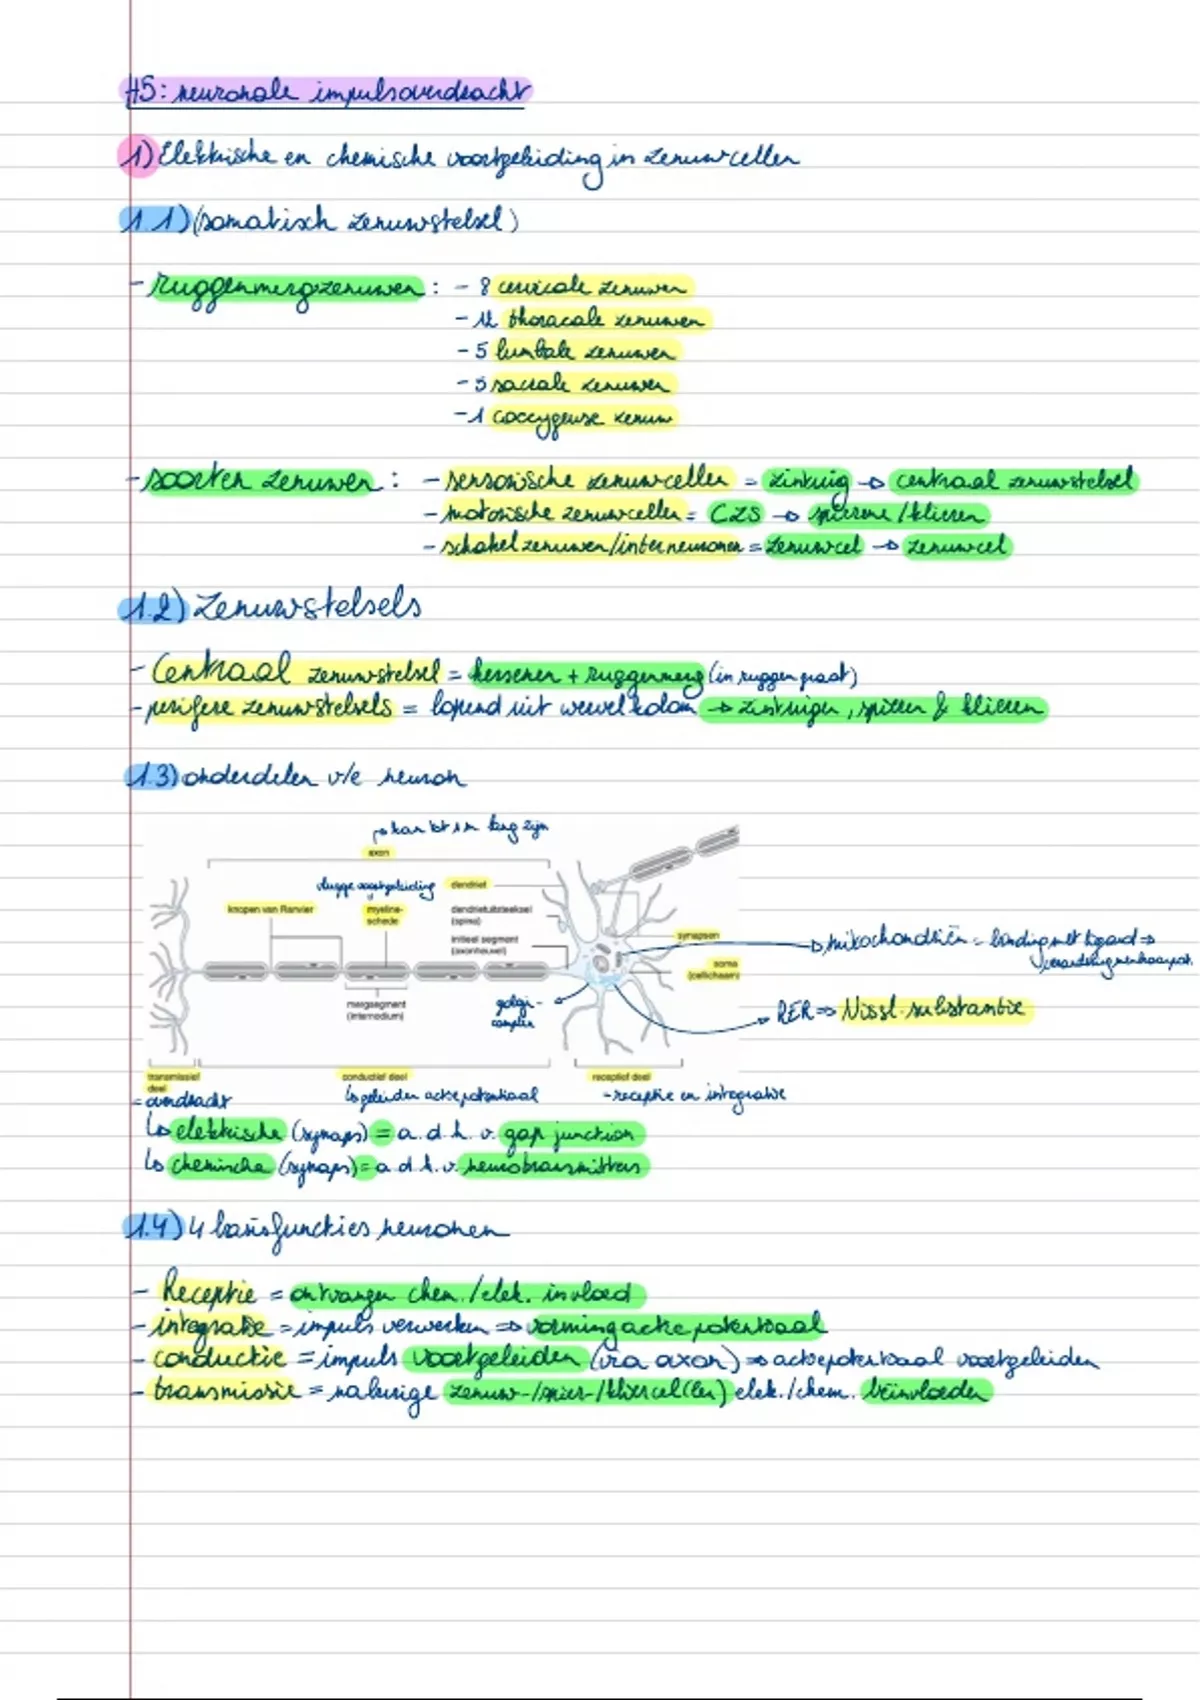 H5: neuronale impulsoverdracht
1) Elektrische en chemische voortgeleiding in zenuwcellen
1.1) (somatisch zenuwstelsel)
- ruggenmergzenuwen : - 8 cervicale zenuwen
- 12 thoracale zenuwen
- 5 lumbale zenuwen
- 5 sacrale zenuwen
- 1 coccygeuse zenuw
- soorten zenuwen : - sensorische zenuwcellen = zintuig → centraal zenuwstelsel
- motorische zenuwcellen = CZS → spieren/klieren
- schakelzenuwen/interneuronen = zenuwcel → zenuwcel
1.2) Zenuwstelsels
- Centraal zenuwstelsel = hersenen + ruggenmerg (in ruggengraat)
- perifere zenuwstelsels = lopend uit wervelkolom → zintuigen, spieren & klieren
1.3) onderdelen v/e neuron
↱ kan tot 1m lang zijn
axon
vlugge voortgeleiding
dendriet
knopen van Ranvier
myeline-
schede
dendrietuitsteeksel
(spina)
initieel segment
(axonheuvel)
synapsen
soma
(cellichaam)
→ mitochondriën = binding met ligand ⇒
mergsegment
(internodium)
golgi-
complex
→ RER ⇒ Nissl-substantie
transmissief
deel
conductief deel
receptief deel
= overdracht
↳ geleiden actiepotentiaal
- receptie en integratie
↳ elektrische (synaps) = a.d.h.v. gap junction
↳ chemische (synaps) = a.d.h.v. neurotransmitters
1.4) 4 basisfuncties neuronen
- Receptie = ontvangen chem./elek. invloed
- integratie = impuls verwerken ⇒ vorming actiepotentiaal
- conductie = impuls voortgeleiden (via axon) ⇒ actiepotentiaal voortgeleiden
- transmissie = naburige zenuw-/spier-/kliercel(len) elek./chem. beïnvloeden